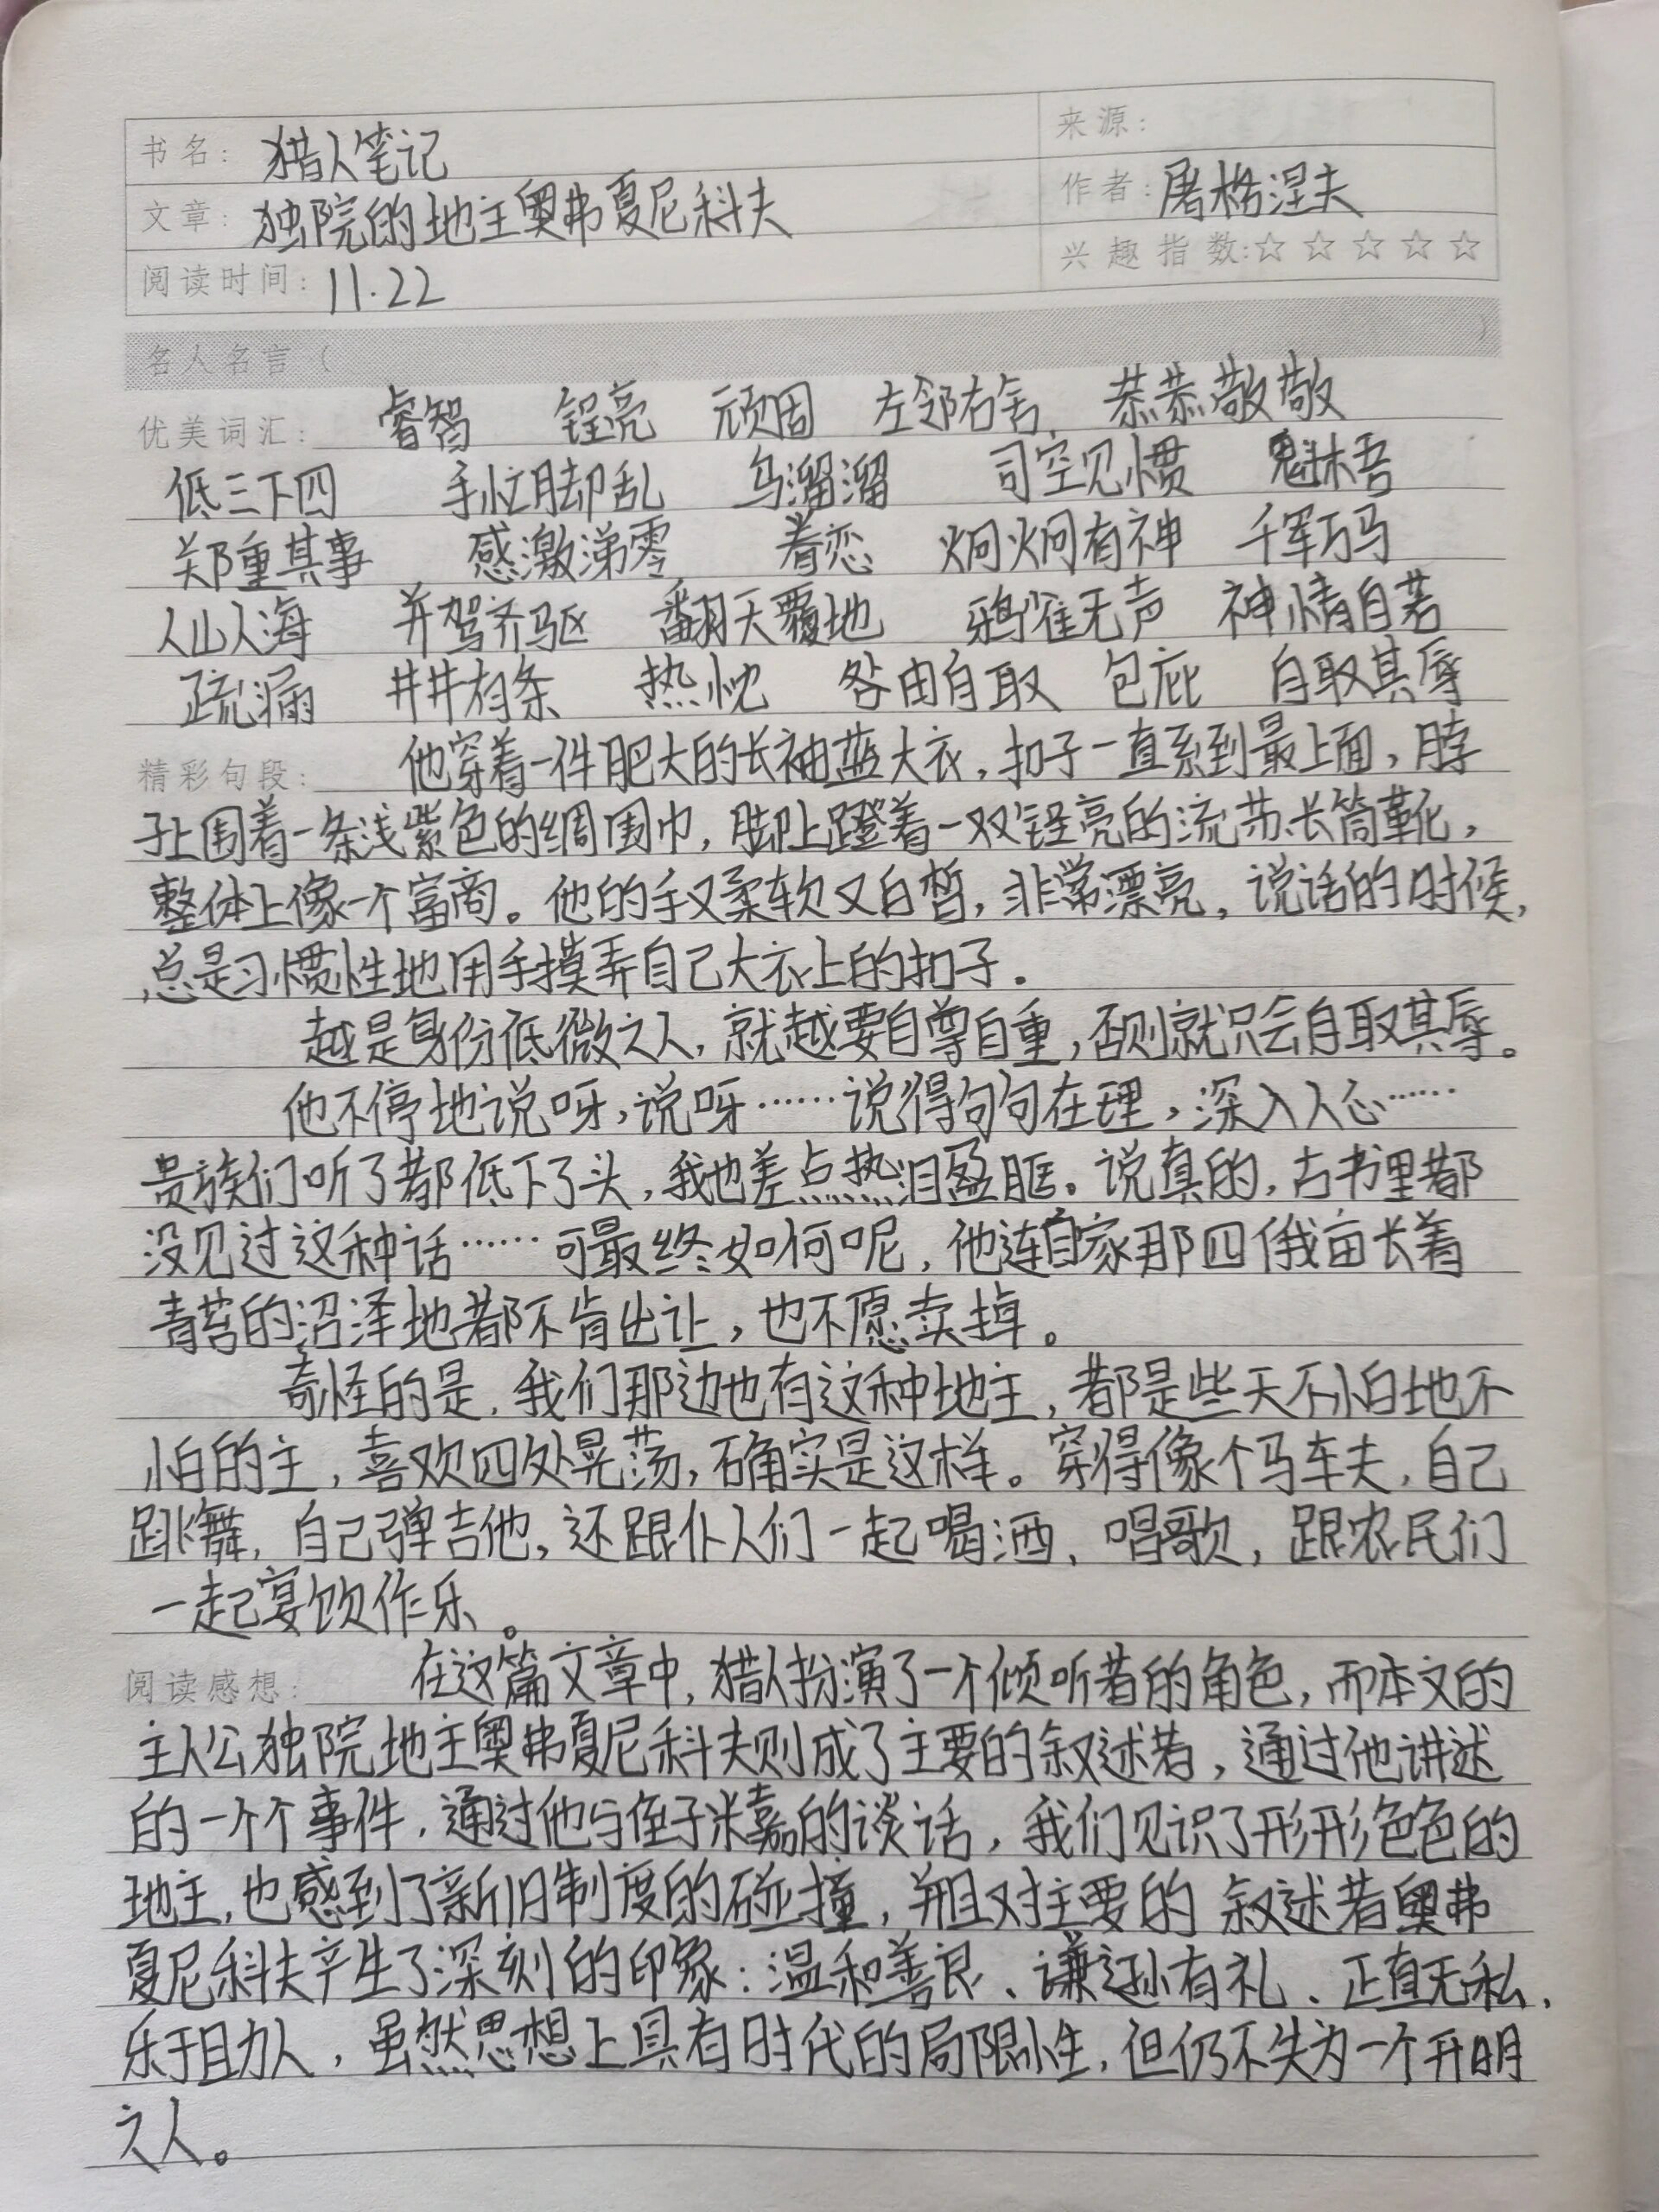 书名: 猎人笔记
来源:
文章: 独院的地主奥弗夏尼科夫
作者: 屠格涅夫
阅读时间: 11.22
兴趣指数:☆ ☆ ☆ ☆ ☆
名人名言 ( )
优美词汇: 睿智 锃亮 顽固 左邻右舍 恭恭敬敬
低三下四 手忙脚乱 乌溜溜 司空见惯 魁梧
郑重其事 感激涕零 眷恋 炯炯有神 千军万马
人山人海 并驾齐驱 翻天覆地 鸦雀无声 神情自若
疏漏 井井有条 热忱 咎由自取 包庇 自取其辱
精彩句段: 他穿着一件肥大的长袖蓝大衣,扣子一直系到最上面,脖
子上围着一条浅紫色的绸围巾,脚上蹬着一双锃亮的流苏长筒靴,
整体上像一个富商。他的手又柔软又白皙,非常漂亮,说话的时候,
总是习惯性地用手摸弄自己大衣上的扣子。
越是身份低微之人,就越要自尊自重,否则就只会自取其辱。
他不停地说呀,说呀……说得句句在理,深入人心……
贵族们听了都低下了头,我也差点热泪盈眶。说真的,古书里都
没见过这种话……可最终如何呢,他连自家那四俄亩长着
青苔的沼泽地都不肯出让,也不愿卖掉。
奇怪的是,我们那边也有这种地主,都是些天不怕地不
怕的主,喜欢四处晃荡,确实是这样。穿得像个马车夫,自己
跳舞,自己弹吉他,还跟仆人们一起喝酒、唱歌,跟农民们
一起宴饮作乐。
阅读感想: 在这篇文章中,猎人扮演了一个倾听者的角色,而本文的
主人公独院地主奥弗夏尼科夫则成了主要的叙述者,通过他讲述
的一个个事件,通过他与侄子米嘉的谈话,我们见识了形形色色的
地主,也感到了新旧制度的碰撞,并且对主要的叙述者奥弗
夏尼科夫产生了深刻的印象:温和善良、谦逊有礼、正直无私、
乐于助人,虽然思想上具有时代的局限性,但仍不失为一个开明
之人。